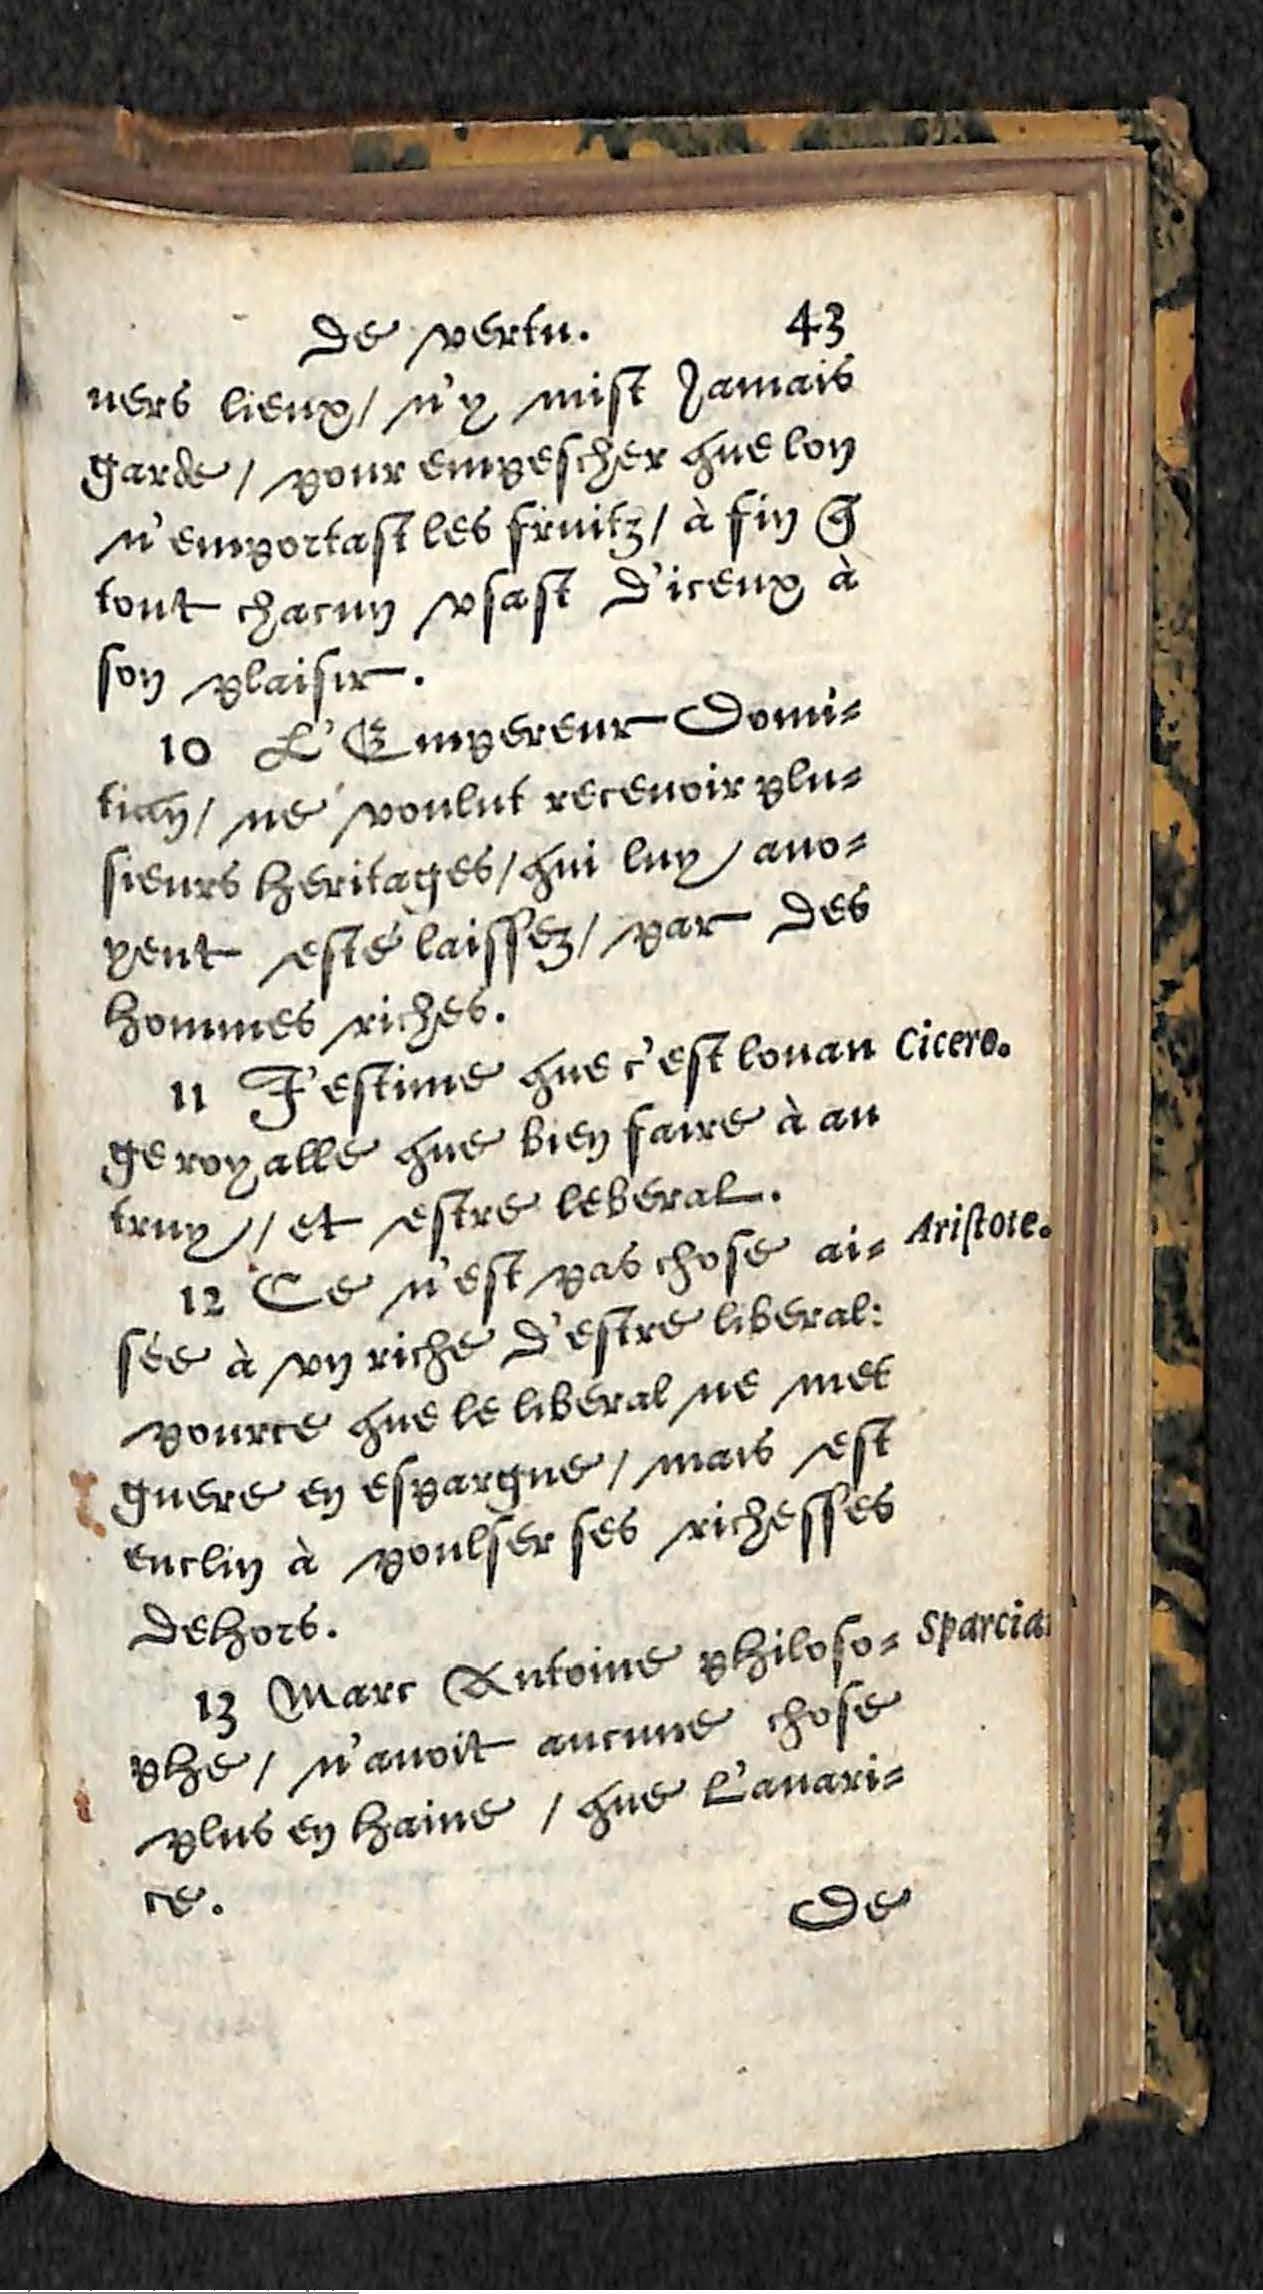 De vertu. 43
uers lieux/ n'y mist Jamais
garde/ pour empescher que lon
n'emportast les fruitz/ à fin q̃
tout chacun vsast d'iceux à
son plaisir.
10 L'Empereur Domi=
tian/ ne voulut receuoir plu=
sieurs heritages/ qui luy auo=
yent esté laissez/ par des
hommes riches.
11 J'estime que c'est louan Cicero.
ge royalle que bien faire à au
truy/ et estre leberal.
12 Ce n'est pas chose ai= Aristote.
sée à vn riche d'estre liberal:
pource que le liberal ne met
guere en espargne/ mais est
enclin à poulser ses richesses
dehors.
13 Marc Antoine philoso= Sparcia
phe/ n'auoit aucune chose
plus en haine/ que l'auari=
ce.
De